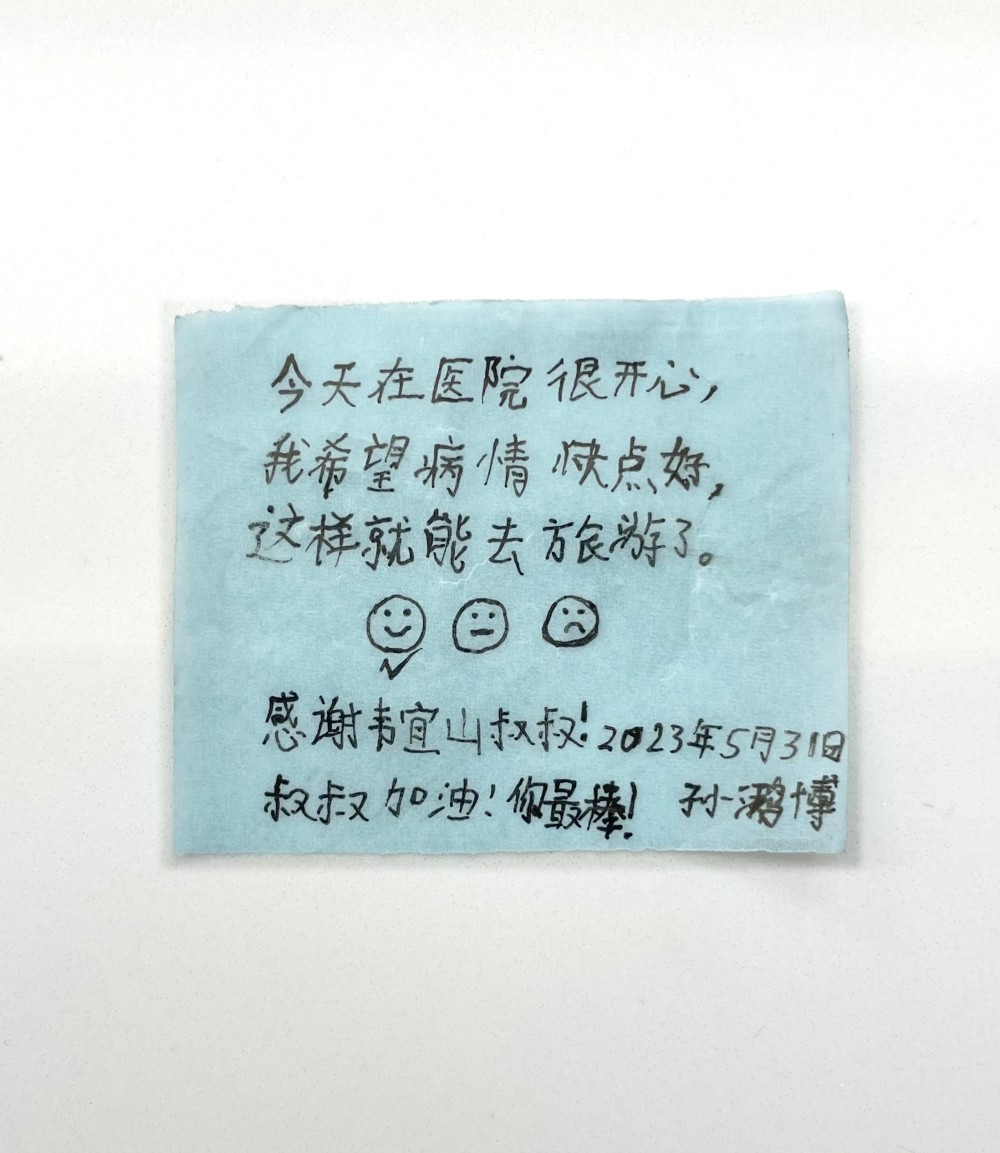 今天在医院很开心，
我希望病情快点好，
这样就能去旅游了。
感谢韦宜山叔叔！2023年5月31日
叔叔加油！你最棒！ 孙鹏博